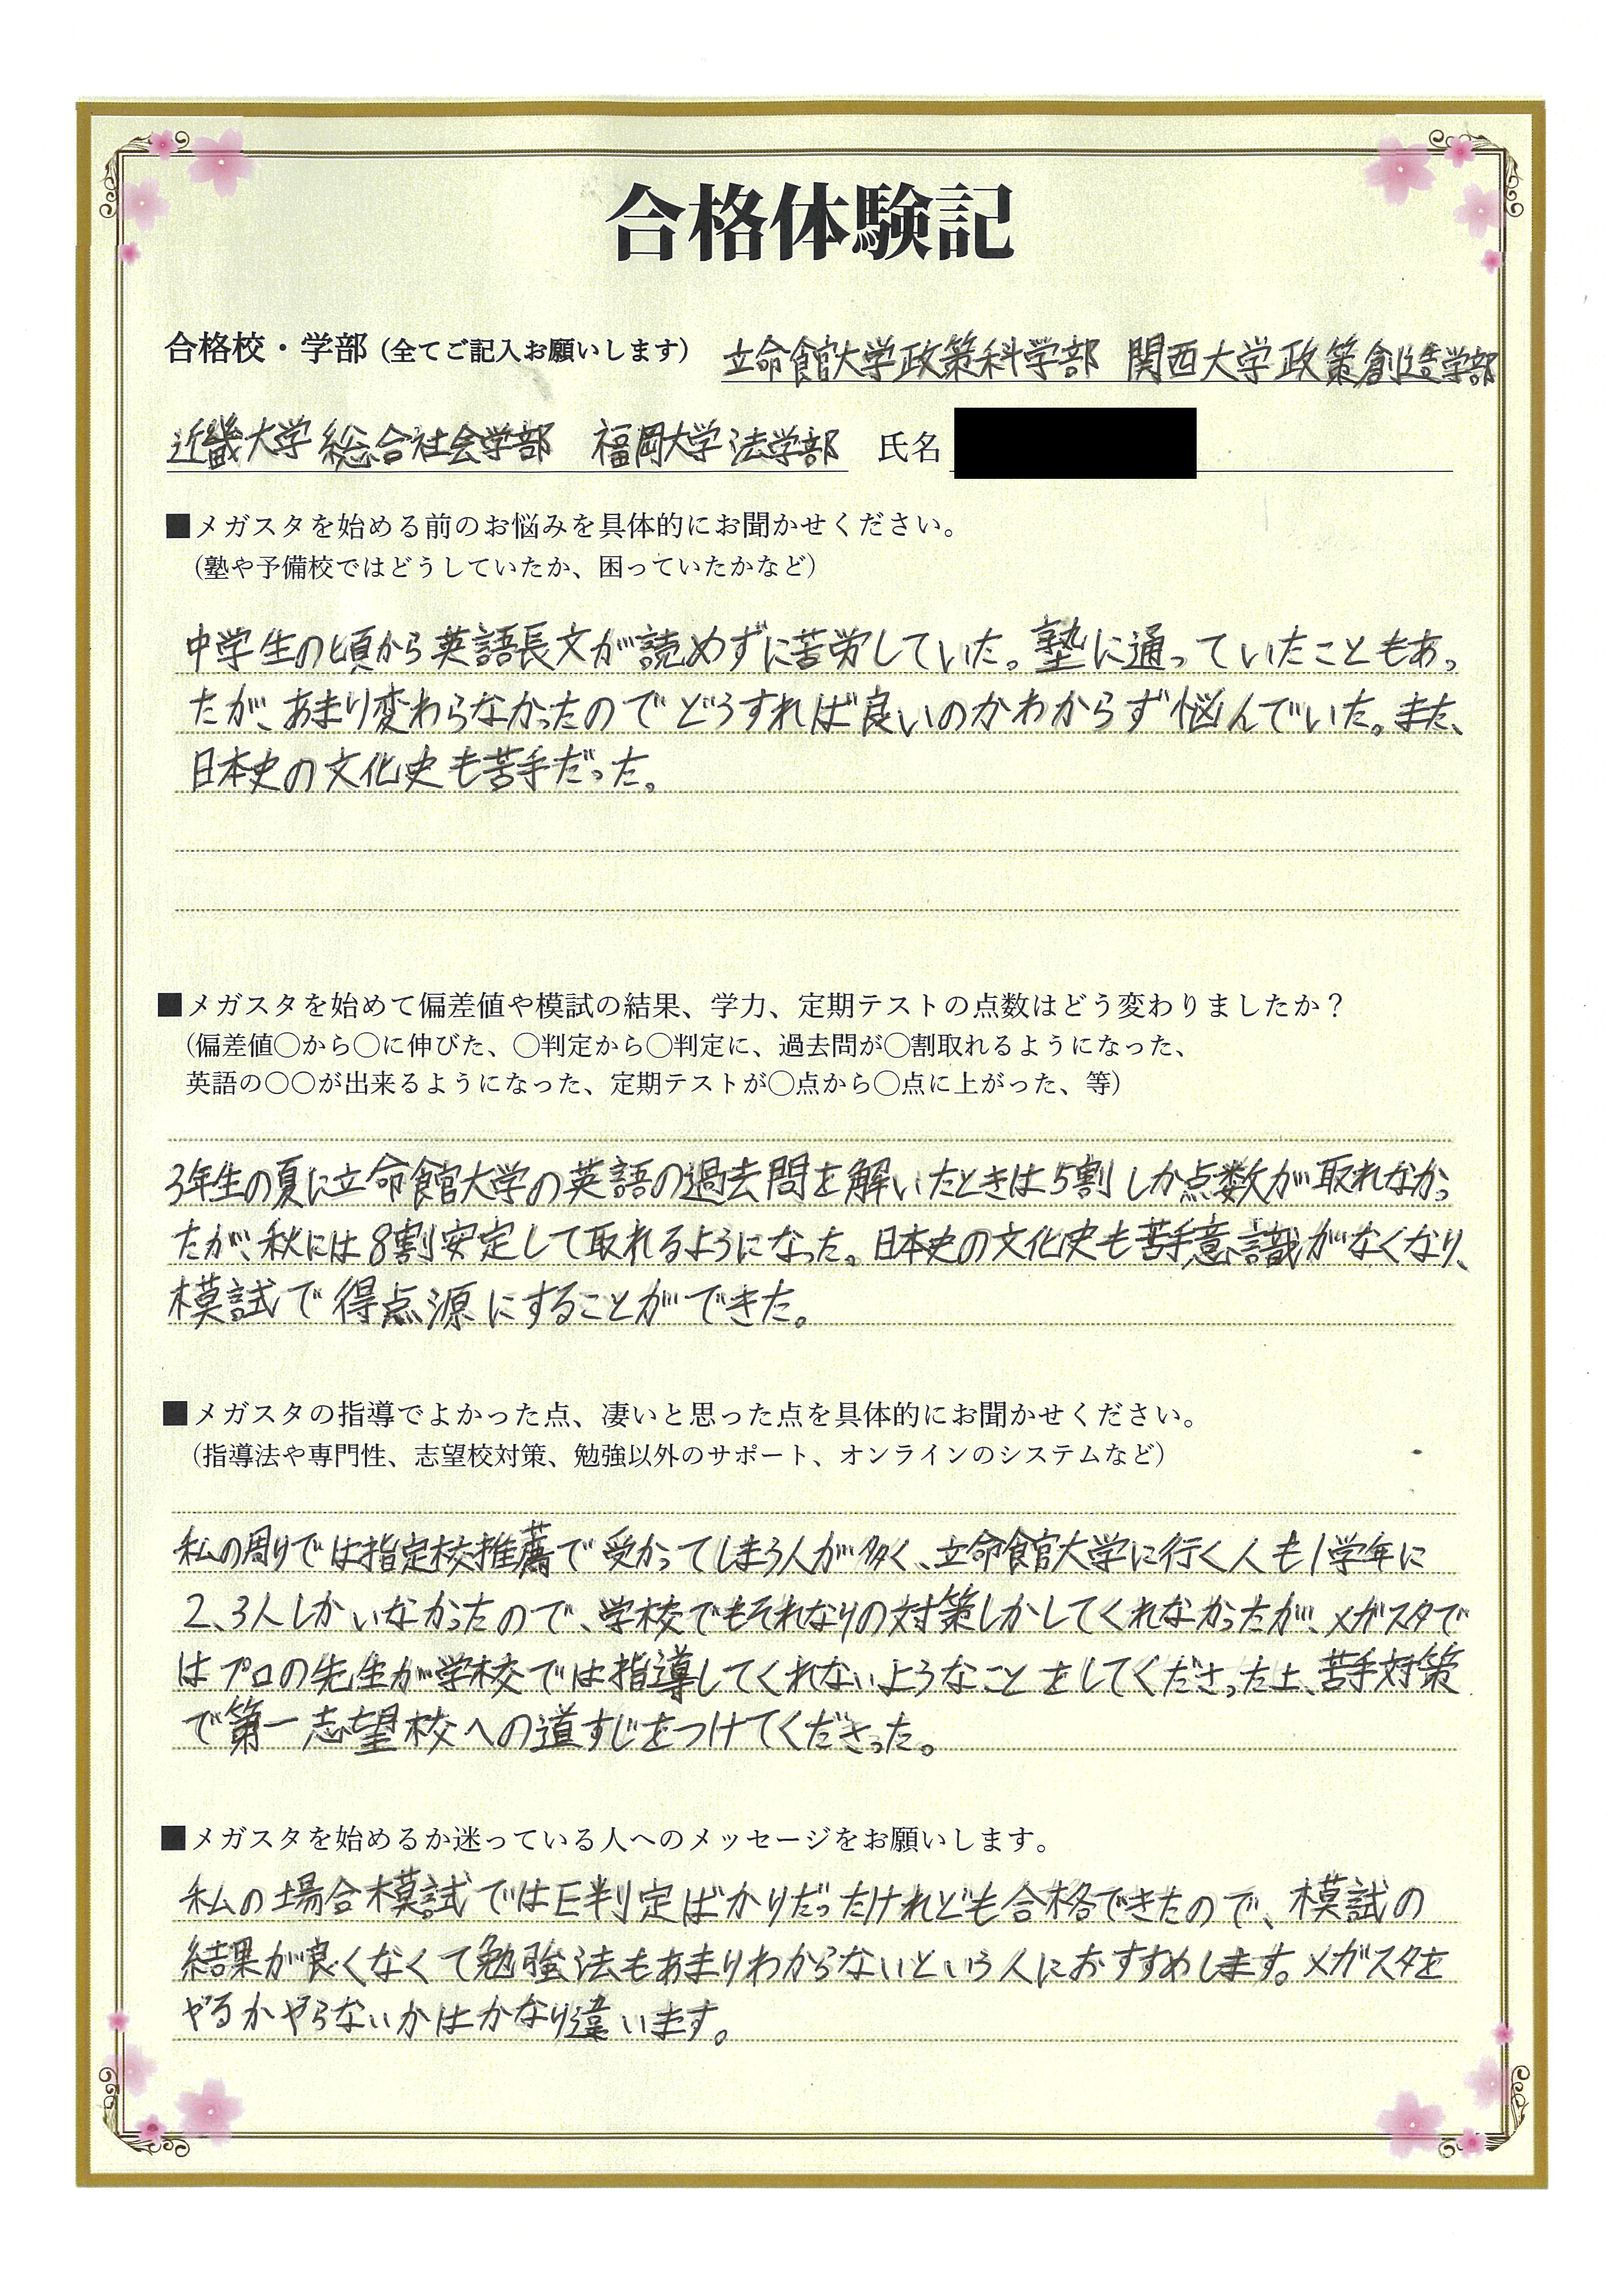 合格体験記
合格校・学部（全てご記入お願いします） 立命館大学政策科学部 関西大学政策創造学部
近畿大学総合社会学部 福岡大学法学部 氏名
■メガスタを始める前のお悩みを具体的にお聞かせください。
（塾や予備校ではどうしていたか、困っていたかなど）
中学生の頃から英語長文が読めずに苦労していた。塾に通っていたこともあっ
たが、あまり変わらなかったのでどうすれば良いのかわからず悩んでいた。また、
日本史の文化史も苦手だった。
■メガスタを始めて偏差値や模試の結果、学力、定期テストの点数はどう変わりましたか？
（偏差値〇から〇に伸びた、〇判定から〇判定に、過去問が〇割取れるようになった、
英語の〇〇が出来るようになった、定期テストが〇点から〇点に上がった、等）
3年生の夏に立命館大学の英語の過去問を解いたときは5割しか点数が取れなかっ
たが、秋には8割安定して取れるようになった。日本史の文化史も苦手意識がなくなり、
模試で得点源にすることができた。
■メガスタの指導でよかった点、凄いと思った点を具体的にお聞かせください。
（指導法や専門性、志望校対策、勉強以外のサポート、オンラインのシステムなど）
私の周りでは指定校推薦で受かってしまう人が多く、立命館大学に行く人も1学年に
2、3人しかいなかったので、学校でもそれなりの対策しかしてくれなかったが、メガスタで
はプロの先生が学校では指導してくれないようなことをしてくださった上、苦手対策
で第一志望校への道すじをつけてくださった。
■メガスタを始めるか迷っている人へのメッセージをお願いします。
私の場合模試ではE判定ばかりだったけれども合格できたので、模試の
結果が良くなくて勉強法もあまりわからないという人におすすめします。メガスタを
やるかやらないかはかなり違います。